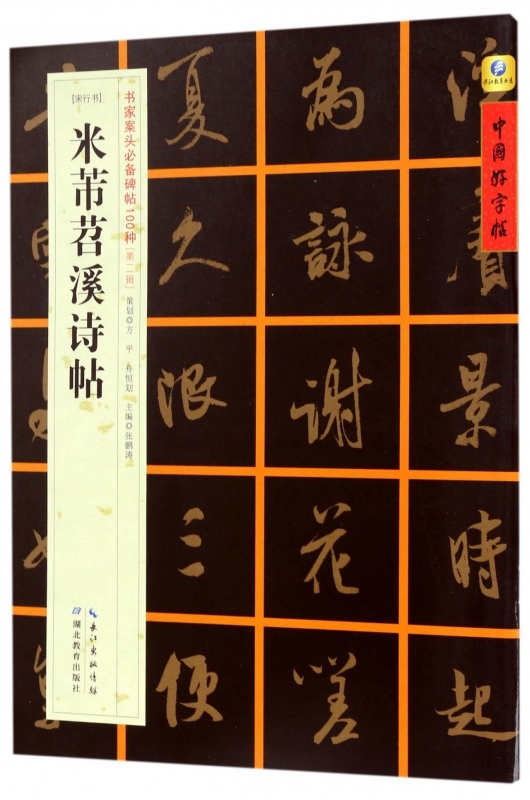 中國好字帖
景時起
為詠謝花嗟
夏久限三便
书家案头必备碑帖100种[第二辑]
策划◎方 平 舟恒划 主编◎张鹏涛
[宋行书]
米芾苕溪诗帖
长江出版传媒
湖北教育出版社